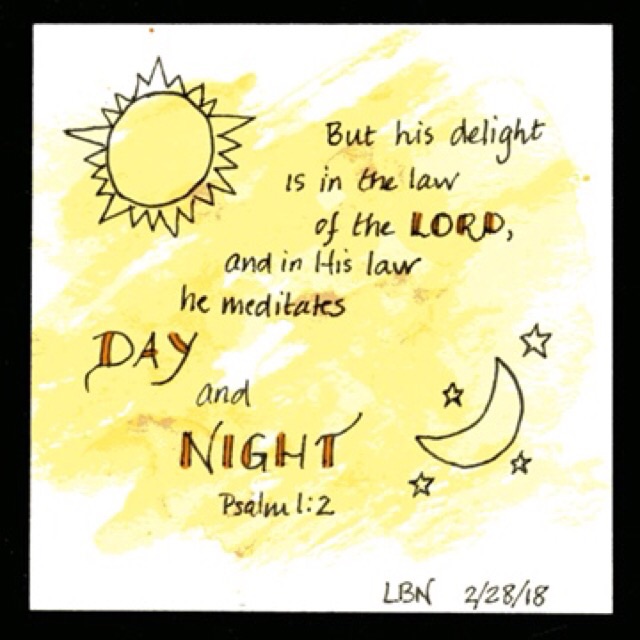 But his delight
is in the law
of the LORD,
and in His law
he meditates
DAY
and
NIGHT
Psalm 1:2
LBN 2/28/18